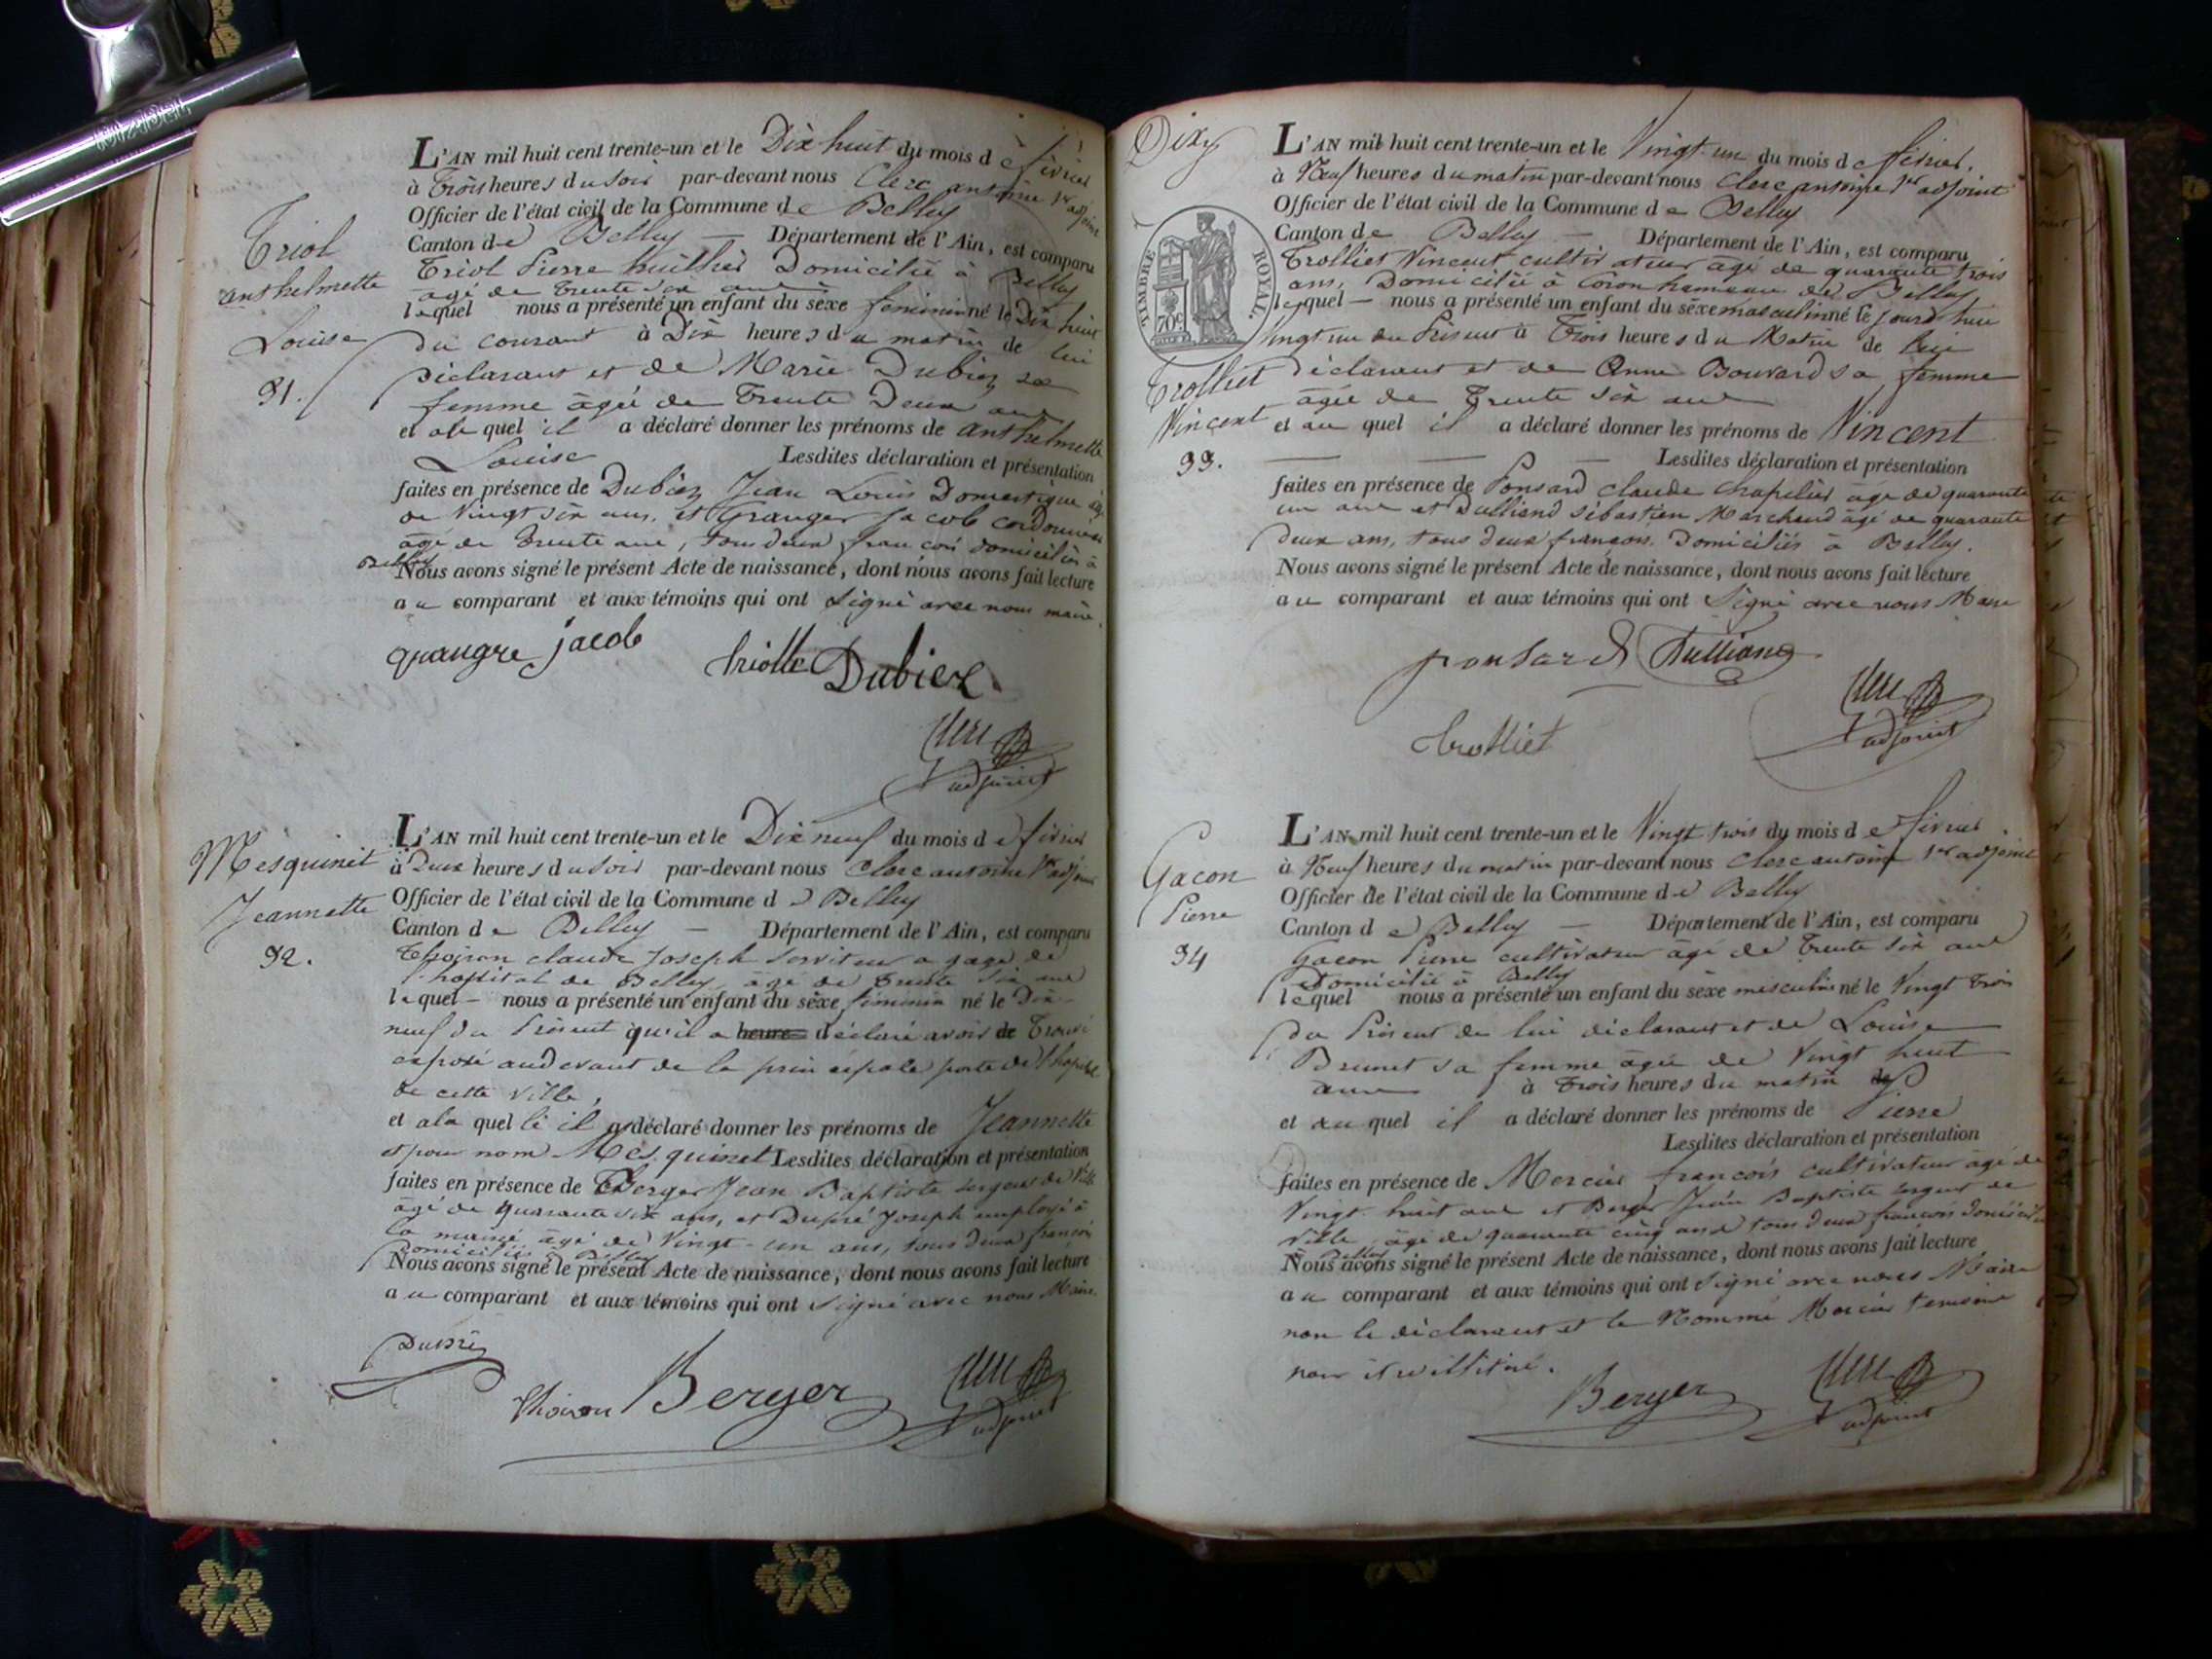 L'AN mil huit cent trente-un et le Dix huit du mois de février
à Trois heures du soir par-devant nous Clerc antoine 1er adjoint
Officier de l'état civil de la Commune de Belley
Canton de Belley — Département de l'Ain, est comparu
Triol Pierre huillier Domicilié à Belley
agé de trente six ans
lequel nous a présenté un enfant du sèxe feminin né le Dix huit
du courant à Dix heures du matin de lui
Déclarant et de Marie Dubiez sa
femme âgée de Trente Deux ans
et a la quel il a déclaré donner les prénoms de anthelmette
Louise Lesdites déclaration et présentation
faites en présence de Dubiez Jean Louis Domestique âgé
de Vingt six ans, et Granger Jacob cordonnier
âgé de Trente ans, tous deux francois domiciliés à
Belley
Nous avons signé le présent Acte de naissance, dont nous avons fait lecture
au comparant et aux témoins qui ont signé avec nous maire.
Triol
anthelmette
Louise
31.
grangre jacob triolle Dubiez
Clerc
adjoint
L'AN mil huit cent trente-un et le Dix neuf du mois de février
à Deux heures du soir par-devant nous Clerc antoine 1er adjoint
Officier de l'état civil de la Commune de Belley
Canton de Belley — Département de l'Ain, est comparu
Thoiron claude Joseph serviteur a gage de
l'hopital de Belley, âgé de trente six ans
lequel — nous a présenté un enfant du sèxe féminin né le Dix
neuf du Présent qu'il a heures déclaré avoir de Trouvé
exposé audevant de la principale porte de l'hopital
de cette ville,
et a la quelle il a déclaré donner les prénoms de Jeannette
et pour nom Mesquinet Lesdites déclaration et présentation
faites en présence de Berger Jean Baptiste sergent de Ville
âgé de quarante six ans, et Dupré Joseph employé à
la mairie âgé de Vingt-un ans, tous deux francois
Domiciliés à Belley
Nous avons signé le présent Acte de naissance, dont nous avons fait lecture
au comparant et aux témoins qui ont signé avec nous Maire.
Mesquinet
Jeannette
32.
Dupré
thoiron Berger Clerc
adjoint
Dixy
L'AN mil huit cent trente-un et le Vingt-un du mois de février.
à Neuf heures du matin par-devant nous Clerc antoine 1er adjoint
Officier de l'état civil de la Commune de Belley
Canton de Belley — Département de l'Ain, est comparu
Trolliet Vincent cultivateur âgé de quarante trois
ans, Domicilié à Coron hameau de Belley
lequel — nous a présenté un enfant du sèxe masculin né le jourd'hui
Vingt un du Présent à Trois heures du Matin de lui
déclarant et de Anne Bouvard sa femme
âgée de Trente six ans
et au quel il a déclaré donner les prénoms de Vincent
Lesdites déclaration et présentation
faites en présence de Ponsard claude chapelier âgé de quarante
un ans et Dulliand sébastien Marchand âgé de quarante
deux ans, tous deux francois. Domiciliés à Belley.
Nous avons signé le présent Acte de naissance, dont nous avons fait lecture
au comparant et aux témoins qui ont Signé avec nous Maire
TIMBRE ROYAL
70c
Trolliet
Vincent
33.
ponsard Dulliand
Clerc
adjoint
trolliet
L'AN mil huit cent trente-un et le Vingt trois du mois de février
à Neuf heures du matin par-devant nous Clerc antoine 1er adjoint
Officier de l'état civil de la Commune de Belley
Canton de Belley — Département de l'Ain, est comparu
Gacon Pierre cultivateur âgé de Trente six ans
Domicilié à Belley
lequel nous a présenté un enfant du sèxe masculin né le Vingt Trois
du Présent de lui déclarant et de Louise
Brunet sa femme âgée de Vingt huit
ans à Trois heures du matin de
et au quel il a déclaré donner les prénoms de Pierre
Lesdites déclaration et présentation
faites en présence de Mercier francois cultivateur âgé de
Vingt-huit ans et Berger Jean Baptiste sergent de
Ville, âgé de quarante cinq ans tous deux francois domiciliés
à Belley
Nous avons signé le présent Acte de naissance, dont nous avons fait lecture
au comparant et aux témoins qui ont signé avec nous Maire
non le déclarant et le Nommé Mercier temoin
pour être illitéré.
Gacon
Pierre
34
Berger Clerc
adjoint